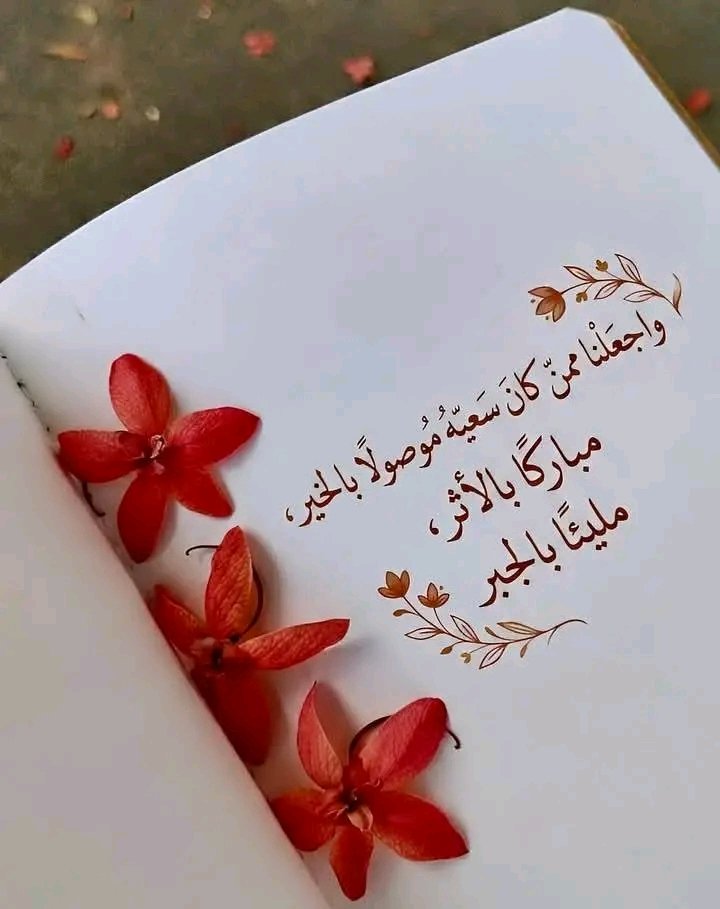 واجعَلْنا ممنّ كانَ سَعيهّ مُوُصولًا بالخير،
مباركًا بالأثر،
مليئًا بالجبر